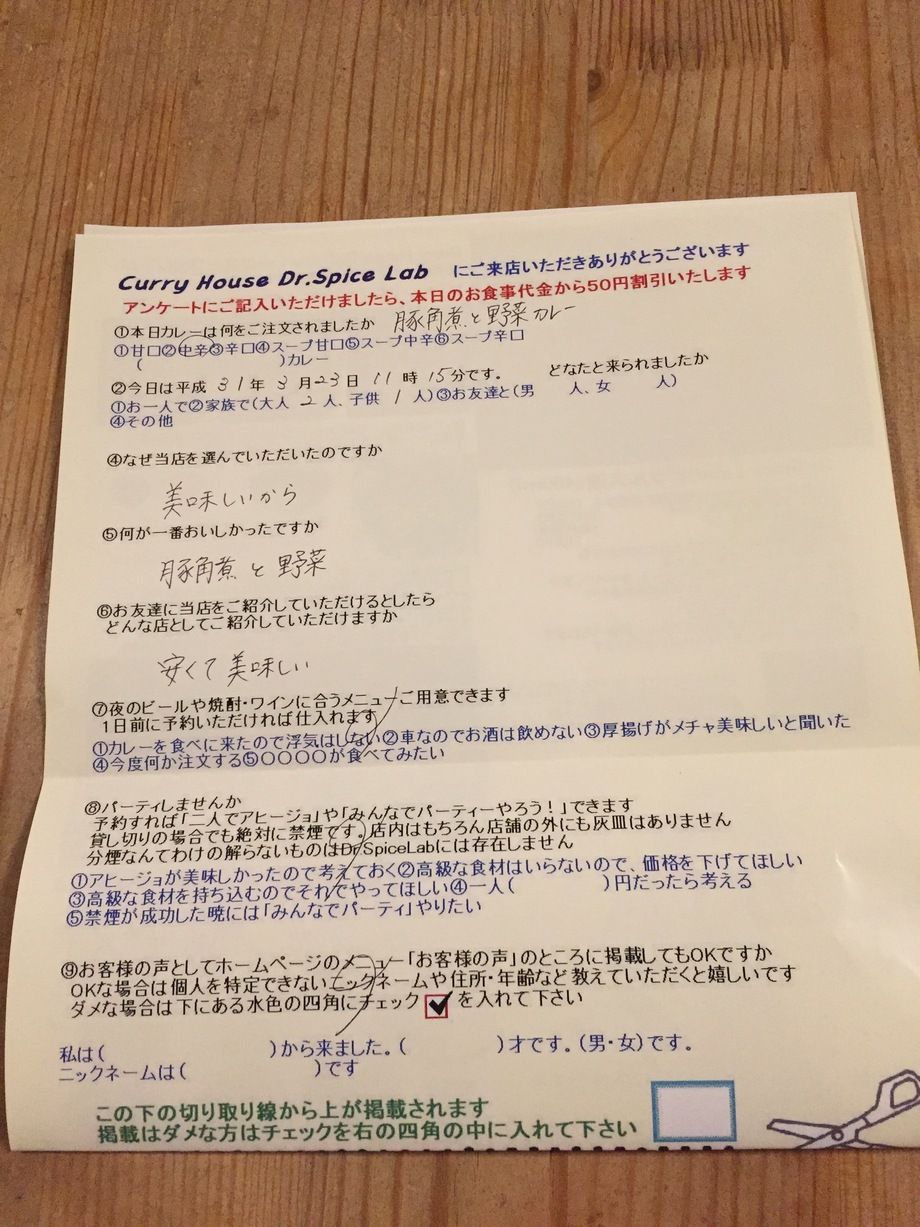 Curry House Dr.Spice Lab にご来店いただきありがとうございます
アンケートにご記入いただけましたら、本日のお食事代金から50円割引いたします
①本日カレーは何をご注文されましたか 豚角煮と野菜カレー
①甘口②中辛③辛口④スープ甘口⑤スープ中辛⑥スープ辛口
( )カレー
②今日は平成 31年 3月23日 11時 15分です。 どなたと来られましたか
①お一人で②家族で(大人 2人、子供 1人)③お友達と(男 人、女 人)
④その他
④なぜ当店を選んでいただいたのですか
美味しいから
⑤何が一番おいしかったですか
豚角煮と野菜
⑥お友達に当店をご紹介していただけるとしたら
どんな店としてご紹介していただけますか
安くて美味しい
⑦夜のビールや焼酎・ワインに合うメニューご用意できます
1日前に予約いただければ仕入れます
①カレーを食べに来たので浮気はしない②車なのでお酒は飲めない③厚揚げがメチャ美味しいと聞いた
④今度何か注文する⑤〇〇〇〇が食べてみたい
⑧パーティしませんか
予約すれば「二人でアヒージョ」や「みんなでパーティーやろう!」できます
貸し切りの場合でも絶対に禁煙です。店内はもちろん店舗の外にも灰皿はありません
分煙なんてわけの解らないものはDr.SpiceLabには存在しません
①アヒージョが美味しかったので考えておく②高級な食材はいらないので、価格を下げてほしい
③高級な食材を持ち込むのでそれでやってほしい④一人( )円だったら考える
⑤禁煙が成功した暁には「みんなでパーティ」やりたい
⑨お客様の声としてホームページのメニュー「お客様の声」のところに掲載してもOKですか
OKな場合は個人を特定できないニックネームや住所・年齢など教えていただくと嬉しいです
ダメな場合は下にある水色の四角にチェック✔を入れて下さい
私は( )から来ました。( )才です。(男・女)です。
ニックネームは( )です
この下の切り取り線から上が掲載されます
掲載はダメな方はチェックを右の四角の中に入れて下さい